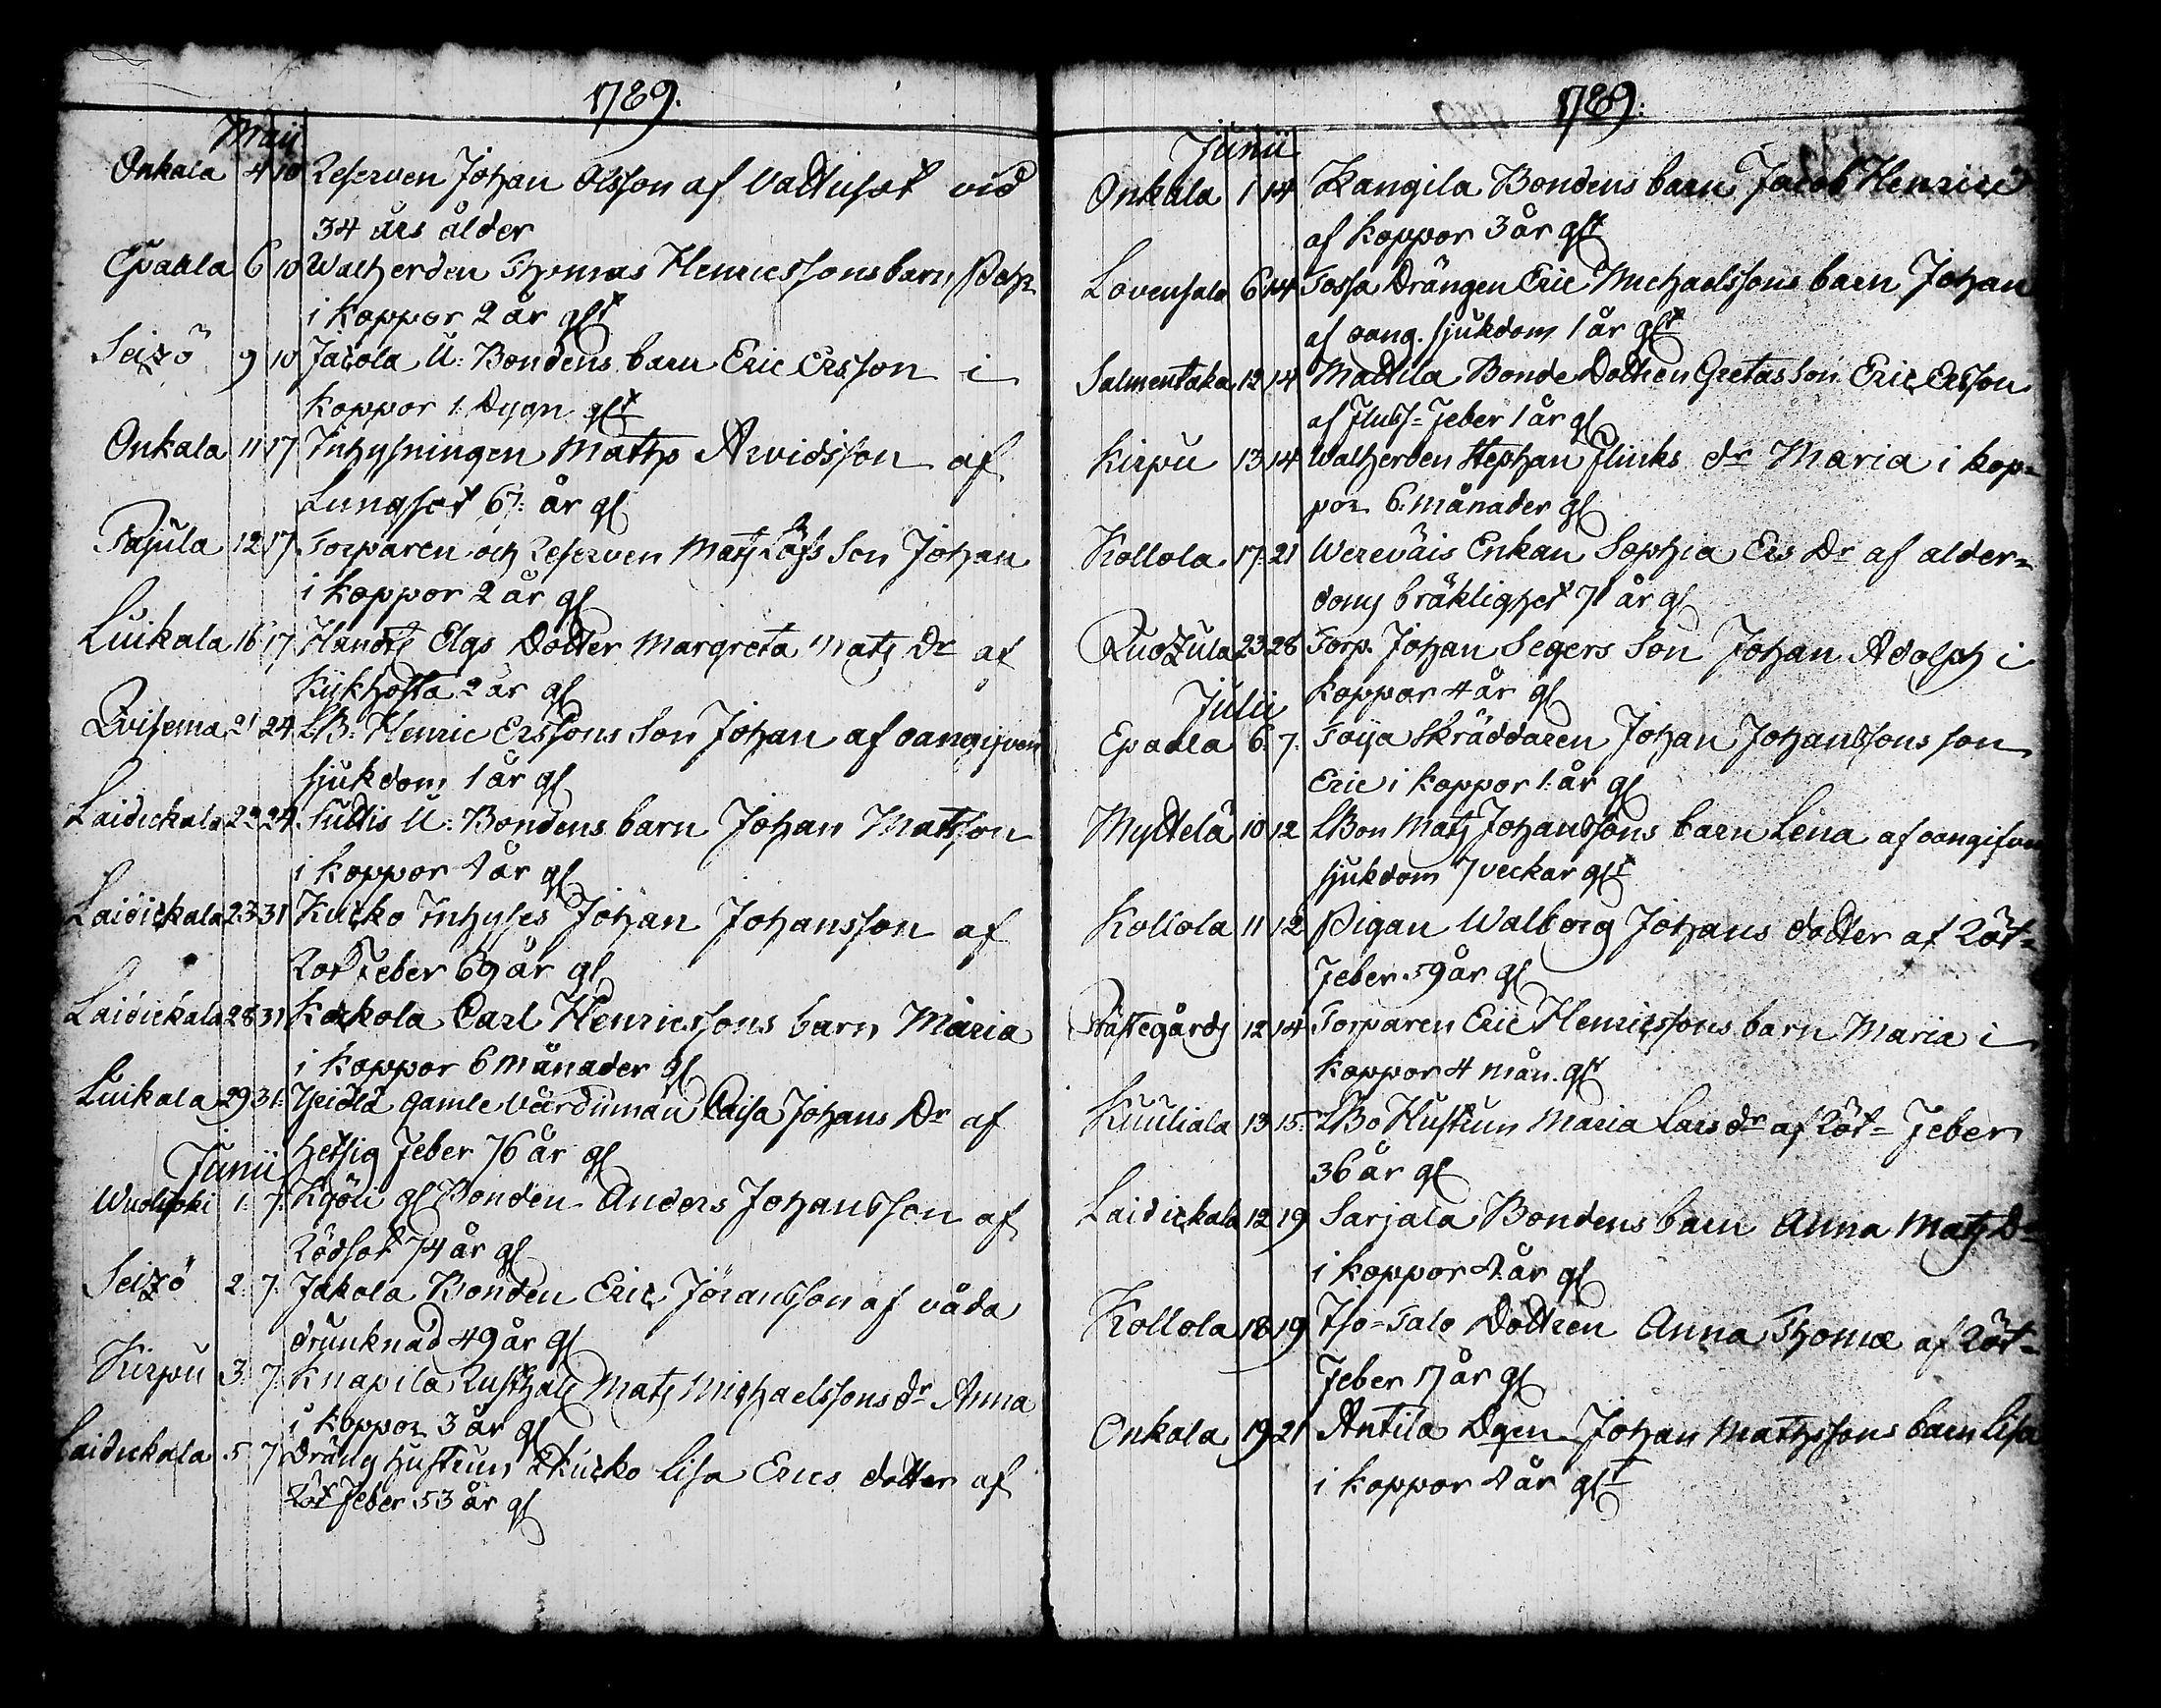 1789.
Maii
Onkala 4 10 Reserven Johan Olsson af Vattusot vid
34 års ålder
Epaala 6 10 Walherden Thomas Henricssons barn Pehr
i koppor 2 år glt
Seizö 9 10 Jacola U: Bondens barn Eric Ersson i
koppor 1: Dygn glt
Onkala 11 17 Inhysningen Maths Arvidsson af
Lungsot 67: år gl
Pajula 12 17 Torparen och Reserven Mats Löfs Son Johan
i koppor 2 år gl
Luikala 16 17 Elgs Dotter Margreta Mats Dr af
Kikhosta 2 år gl
Qvisema 21 24 SB. Henric Erssons Son Johan af oangifven
sjukdom 1 år gl
Laidickala 22 24 Suttis U: Bondens barn Johan Matsson
i koppor 1 år gl
Laidickala 23 31 Kucko Inhyses Johan Johansson af
Rötfeber 69 år gl
Laidickala 28 31 Kackola Carl Henricssons barn Maria
i koppor 6 månader gl
Luikala 29 31. Heiolå gamle värdinnan Caisa Johans Dr af
hetsig feber 76 år gl
Junii
1: 7: Kjöli gl Bonden Anders Johansson af
Rödsot 74 år gl
Seizö 2: 7: Jakola Bonden Eric Jöransson af våda
drunknad 49 år gl
Kirpu 3: 7: Knapila Rusthåls Mats Michaelssons dr Anna
i koppor 3 år gl
Laidickala 5 7 Dräng hustrun Kucko Lisa Erics dotter af
Rötfeber 53 år gl
1789.
Junii
Onkala 1 14 Kangila Bondens barn Jacob Henrici
af koppor 3 år glt
Lovensala 6 14 Tossa Drängen Eric Michaelssons barn Johan
af oang. sjukdom 1 år glt
Salmentaka 12 14 Mattila Bonde Dottren Gretas Son Eric Ersson
af fluss-feber 1 år gl
Kirpu 13 14 Walherden Stephan Flinks dr Maria i kop-
por 6. månader gl
Kollola 17. 21 Wereväis Enkan Sophia Ers Dr af alder-
doms bräklighet 71 år gl
Ruozula 23 28 Torp. Johan Segers Son Johan Adolph i
koppor 4 år gl
Julii
Epaala 6. 7. Toija Skräddaren Johan Johanssons son
Eric i koppor 1. år gl
Myttelä 10 12 SBon Mats Johanssons barn Lena af oangifven
sjukdom 7 veckar glt
Kollola 11 12 Pigan Walborg Johans dotter af Röt-
feber 59 år gl
Prästegårds 12 14 Torparen Eric Henricssons barn Maria i
koppor 4 mån. glt
Kuuliala 13 15. SBo Hustrun Maria Lars dr af Röt-feber
36 år gl
Laidickala 12 19 Sarjala Bondens barn Anna Mats Dr
i koppor 1. år gl
Kollola 18 19 Iso-Talo Dottren Anna Thomæ af Röt-
feber 17 år gl
Onkala 19 21 Antila Dgen Johan Mathssons barn Lisa
i koppor 1 år glt